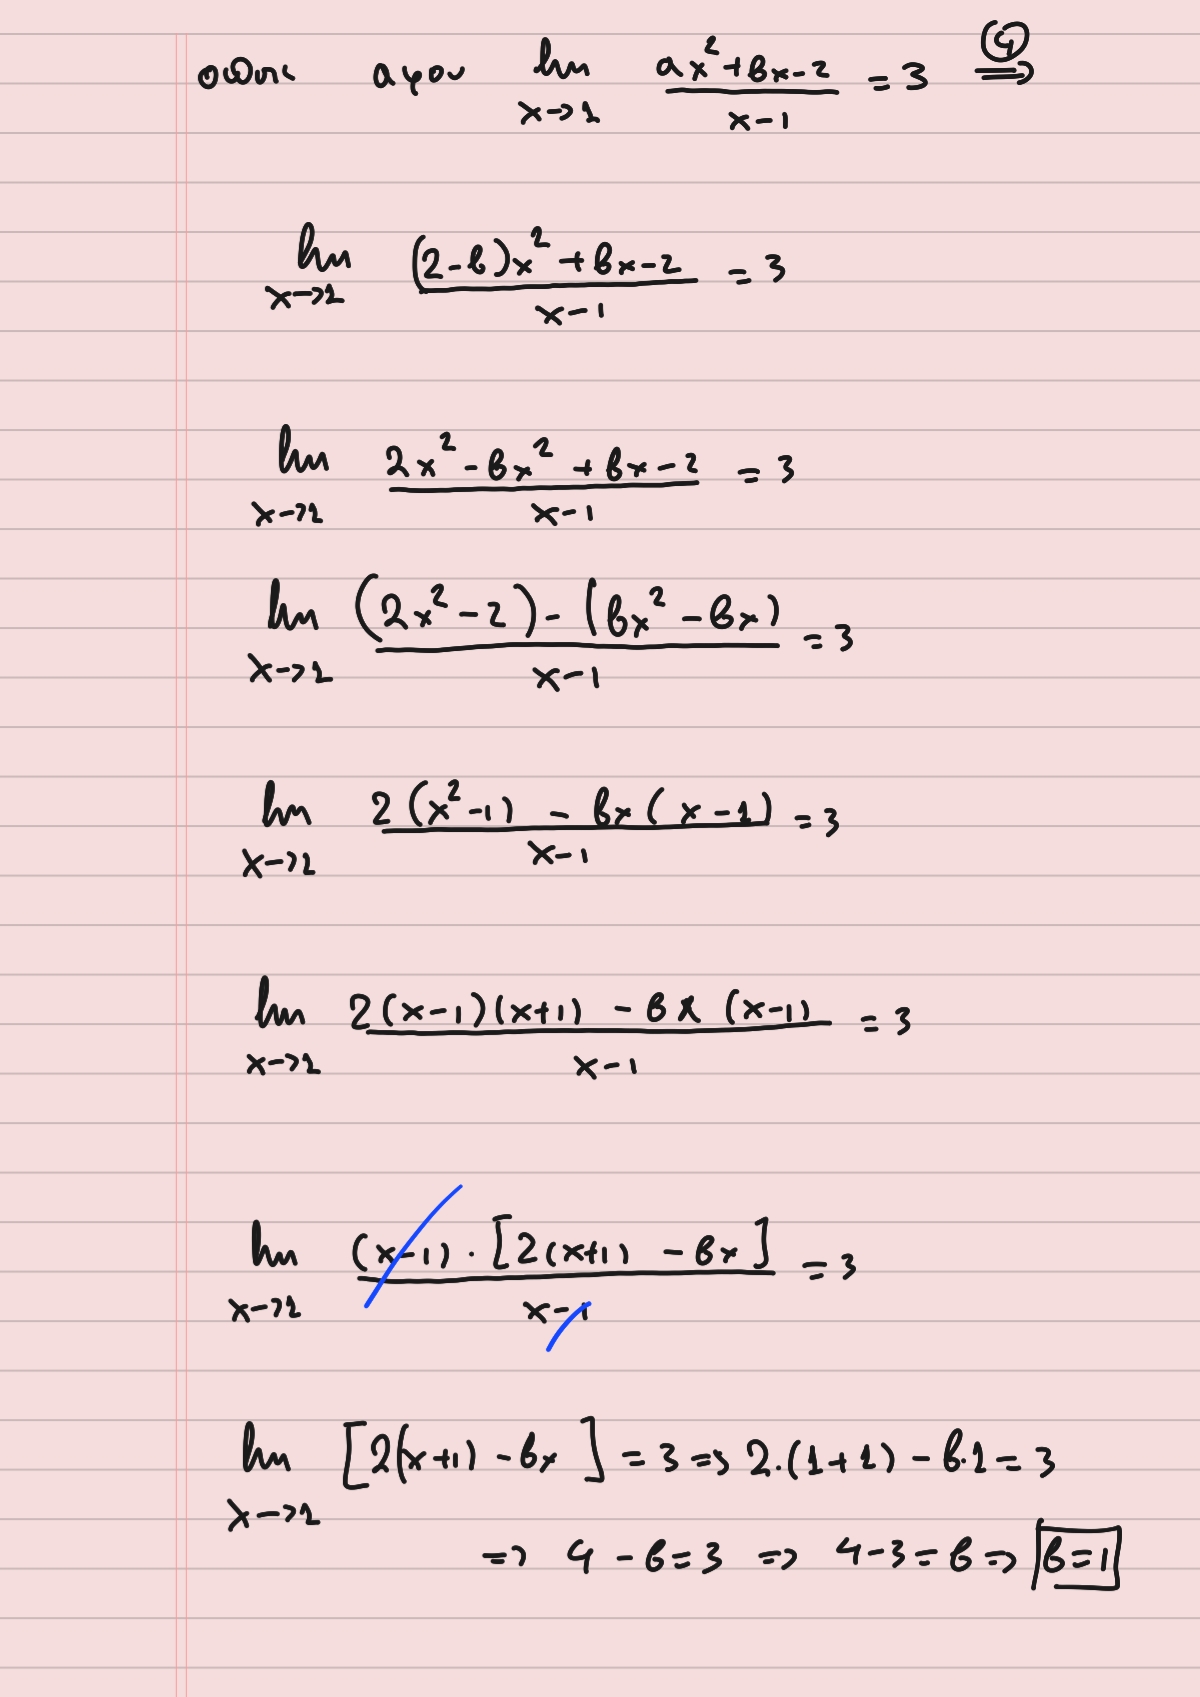 οπότε αφού lim x→1 (αx²+βx-2)/(x-1) = 3 ④⇒
lim x→1 ((2-β)x²+βx-2)/(x-1) = 3
lim x→1 (2x²-βx²+βx-2)/(x-1) = 3
lim x→1 ((2x²-2)-(βx²-βx))/(x-1) = 3
lim x→1 (2(x²-1)-βx(x-1))/(x-1) = 3
lim x→1 (2(x-1)(x+1)-βx(x-1))/(x-1) = 3
lim x→1 ((x-1)·[2(x+1)-βx])/(x-1) = 3
lim x→1 [2(x+1)-βx] = 3 ⇒ 2.(1+1)-β.1=3
⇒ 4-β=3 ⇒ 4-3=β ⇒ β=1